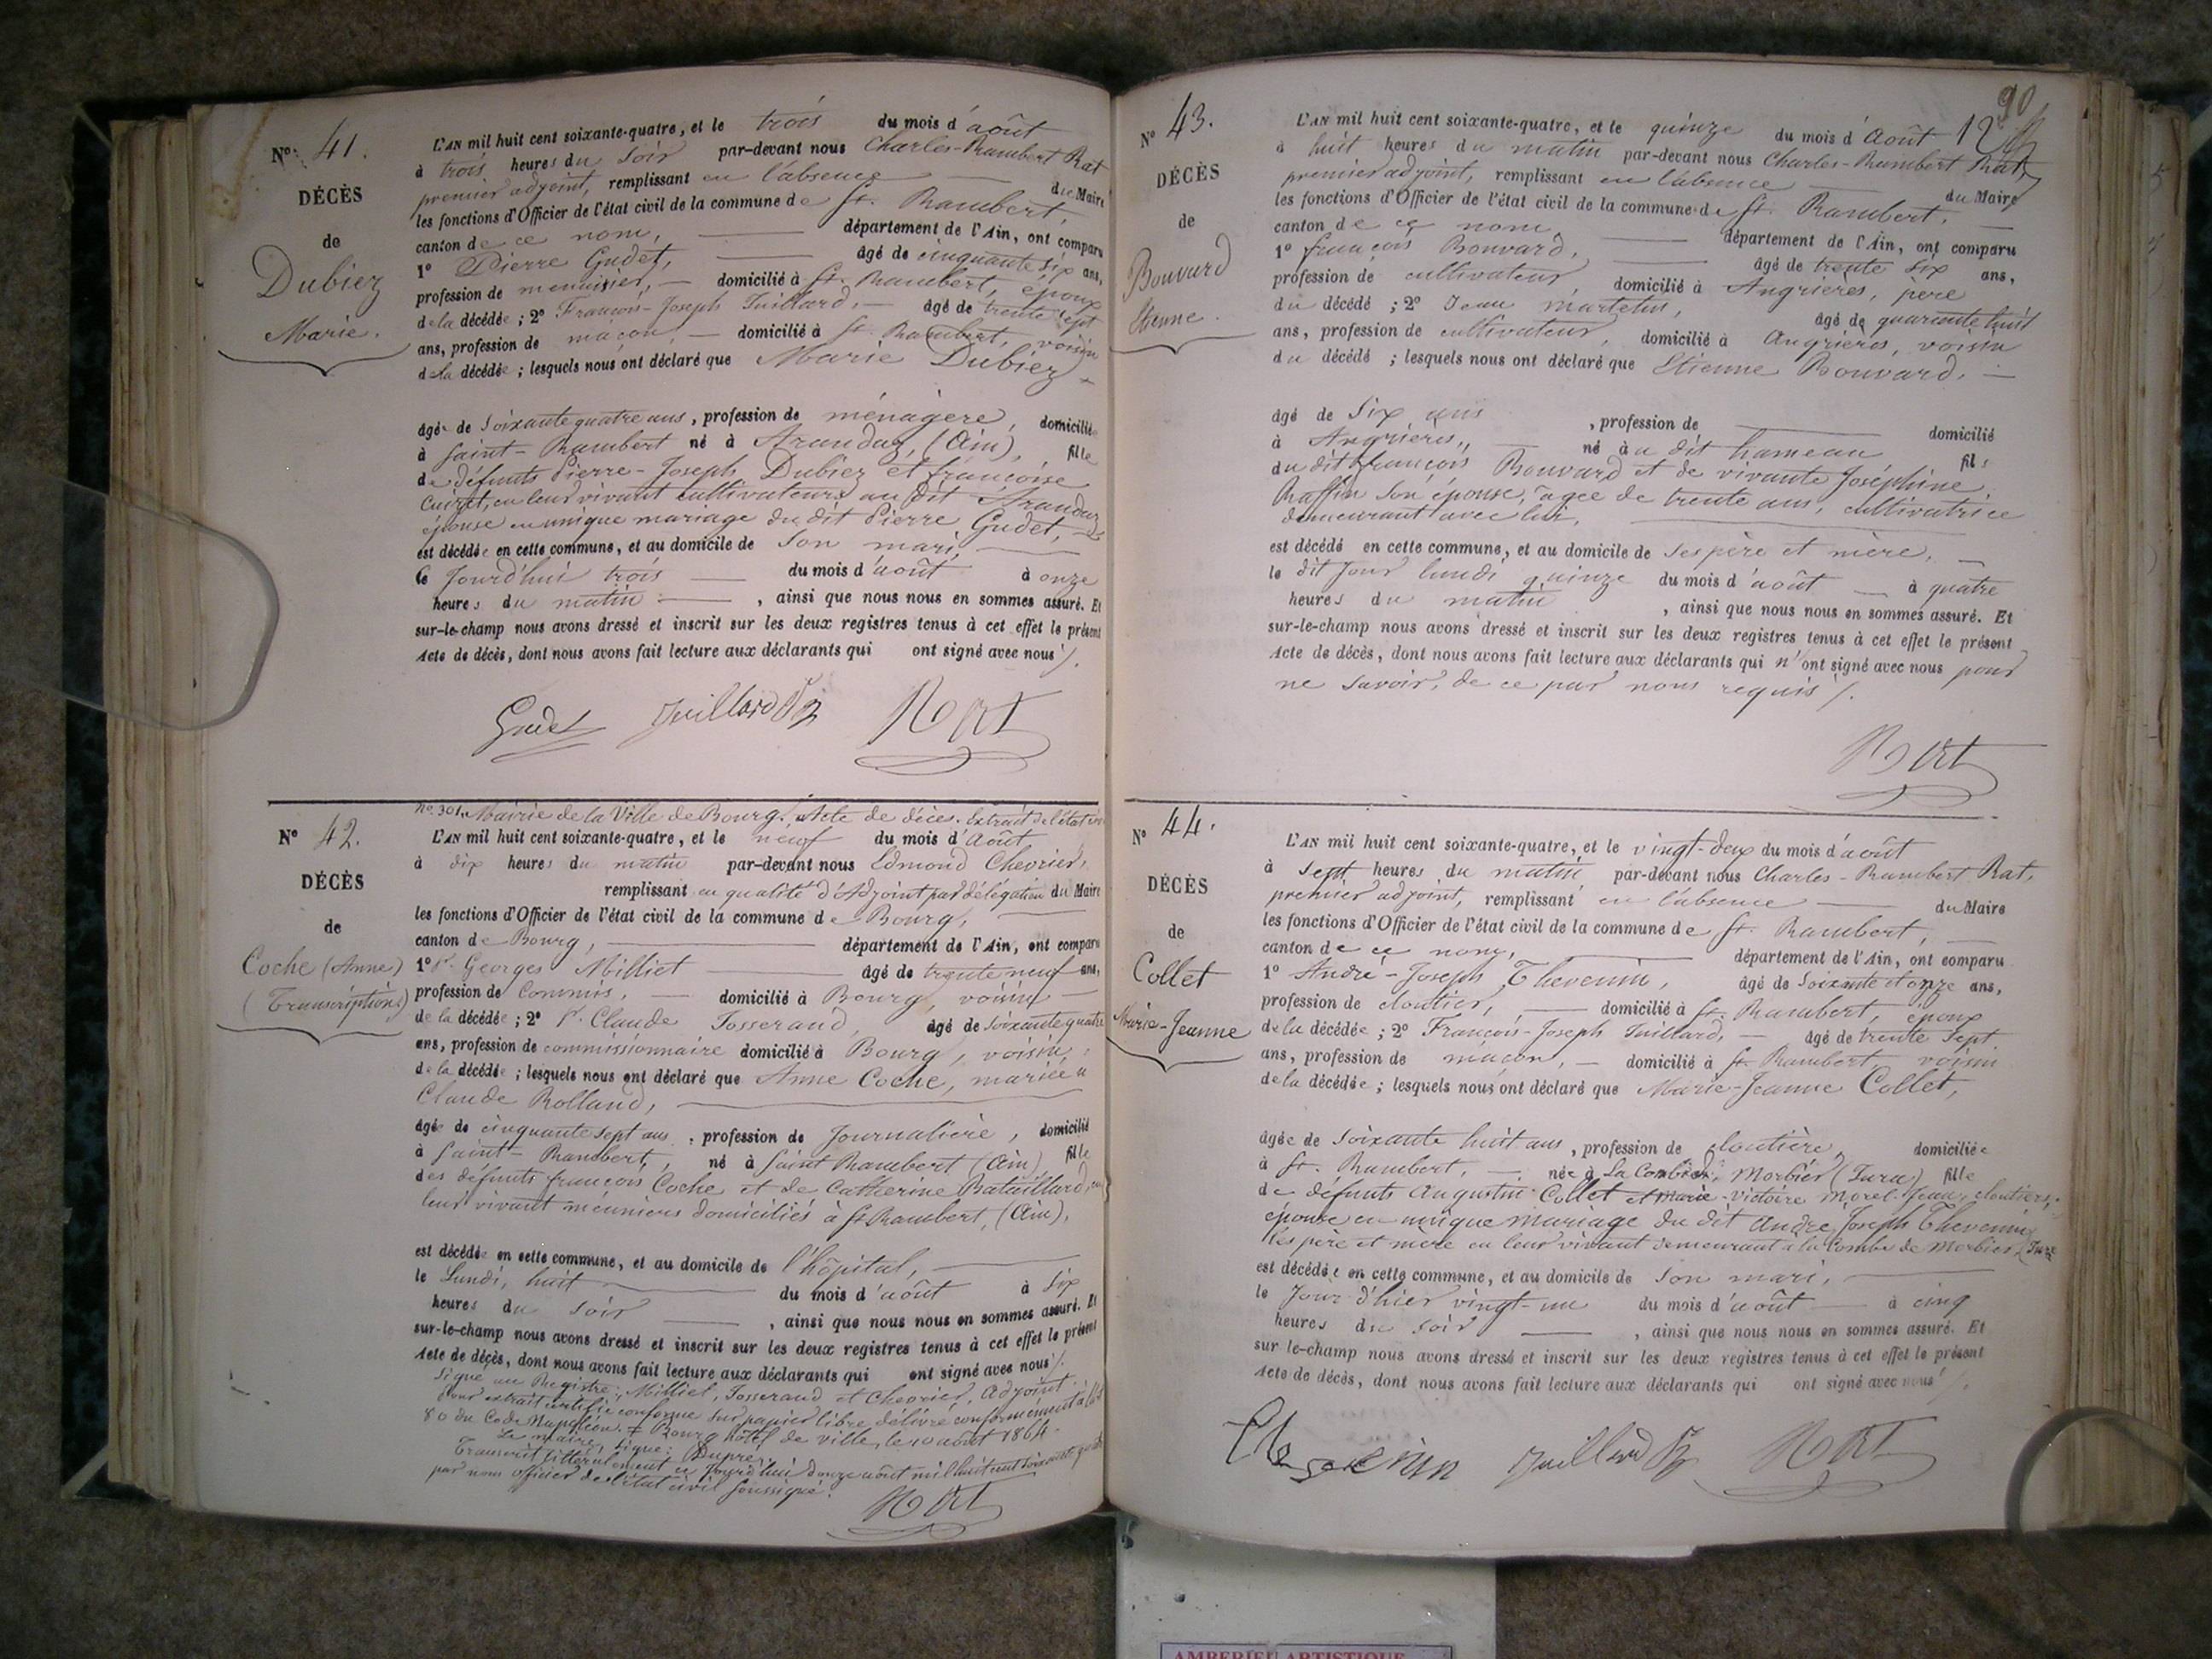 Nº 41.
DÉCÈS
de
Dubiez
Marie.
L'AN mil huit cent soixante-quatre, et le trois du mois d'août
à trois heures du soir par-devant nous Charles-Rambert Rat
premier adjoint, remplissant en l'absence du Maire
les fonctions d'Officier de l'état civil de la commune de St. Rambert,
canton de ce nom, département de l'Ain, ont comparu
1º Pierre Gudet, âgé de cinquante six ans,
profession de menuisier, domicilié à St. Rambert, époux
de la décédée ; 2º François-Joseph Juillard, âgé de trente sept
ans, profession de maçon, domicilié à St. Rambert, voisin
de la décédée ; lesquels nous ont déclaré que Marie Dubiez
âgée de soixante quatre ans, profession de ménagère, domiciliée
à Saint-Rambert né à Arandas, (Ain), fille
de défunts Pierre-Joseph Dubiez et françoise
en leur vivant cultivateurs au dit Arandas
épouse en unique mariage du dit Pierre Gudet,
est décédée en cette commune, et au domicile de son mari,
le jourd'hui trois du mois d'août à onze
heures du matin, ainsi que nous nous en sommes assuré. Et
sur-le-champ nous avons dressé et inscrit sur les deux registres tenus à cet effet le présent
Acte de décès, dont nous avons fait lecture aux déclarants qui ont signé avec nous /.
Gudet Juillard Rat
Nº 42.
DÉCÈS
de
Coche (Anne)
(Transcription)
Nº 301. Mairie de la Ville de Bourg. Acte de décès. Extrait de l'état civil
L'AN mil huit cent soixante-quatre, et le neuf du mois d'Août
à dix heures du matin par-devant nous Edmond Chevrier,
remplissant en qualité d'Adjoint par délégation du Maire
les fonctions d'Officier de l'état civil de la commune de Bourg,
canton de Bourg, département de l'Ain, ont comparu
1º Sr. Georges Milliet âgé de trente neuf ans,
profession de Commis, domicilié à Bourg, voisin
de la décédée ; 2º Sr. Claude Josserand, âgé de soixante quatre
ans, profession de commissionnaire domicilié à Bourg, voisin,
de la décédée ; lesquels nous ont déclaré que Anne Coche, mariée à
Claude Rolland,
âgée de cinquante sept ans, profession de Journalière, domicilié
à Saint-Rambert, né à Saint Rambert (Ain), fille
des défunts françois Coche et de Catherine Bataillard, en
leur vivant meuniers domiciliés à St Rambert, (Ain),
est décédée en cette commune, et au domicile de l'hôpital,
le Lundi, huit du mois d'août à six
heures du soir, ainsi que nous nous en sommes assuré. Et
sur-le-champ nous avons dressé et inscrit sur les deux registres tenus à cet effet le présent
Acte de décès, dont nous avons fait lecture aux déclarants qui ont signé avec nous /.
Signé au Registre : Milliet, Josserand et Chevrier, adjoint.
Pour extrait certifié conforme sur papier libre délivré conformément à l'art
80 du Code Napoléon. Bourg hôtel de ville, le 10 août 1864.
Le maire, signé : Dupré,
Transcrit littéralement ce jourd'hui douze août mil huit cent soixante quatre
par nous officier de l'état civil soussigné.
Rat
90
Nº 43.
DÉCÈS
de
Bouvard
Etienne.
L'AN mil huit cent soixante-quatre, et le quinze du mois d'Août
à huit heures du matin par-devant nous Charles-Rambert Rat,
premier adjoint, remplissant en l'absence du Maire
les fonctions d'Officier de l'état civil de la commune de St. Rambert,
canton de ce nom, département de l'Ain, ont comparu
1º françois Bouvard, âgé de trente six ans,
profession de cultivateur, domicilié à Angrières, père
du décédé ; 2º Jean Martelin, âgé de quarante huit
ans, profession de cultivateur, domicilié à Angrières, voisin
du décédé ; lesquels nous ont déclaré que Etienne Bouvard,
âgé de six ans, profession de domicilié
à Angrières, né au dit hameau fils
du dit françois Bouvard et de vivante Joséphine
Raffin son épouse, âgée de trente ans, cultivatrice
demeurant avec lui,
est décédé en cette commune, et au domicile de ses père et mère,
le dit jour lundi quinze du mois d'août à quatre
heures du matin, ainsi que nous nous en sommes assuré. Et
sur-le-champ nous avons dressé et inscrit sur les deux registres tenus à cet effet le présent
Acte de décès, dont nous avons fait lecture aux déclarants qui n'ont signé avec nous pour
ne savoir, de ce par nous requis /.
Rat
Nº 44.
DÉCÈS
de
Collet
Marie-Jeanne
L'AN mil huit cent soixante-quatre, et le vingt-deux du mois d'août
à sept heures du matin par-devant nous Charles-Rambert Rat,
premier adjoint, remplissant en l'absence du Maire
les fonctions d'Officier de l'état civil de la commune de St. Rambert,
canton de ce nom, département de l'Ain, ont comparu
1º André-Joseph Thevenin, âgé de soixante et onze ans,
profession de cloutier, domicilié à St. Rambert, époux
de la décédée ; 2º François-Joseph Juillard, âgé de trente sept
ans, profession de maçon, domicilié à St. Rambert, voisin
de la décédée ; lesquels nous ont déclaré que Marie-Jeanne Collet,
âgée de soixante huit ans, profession de cloutière, domiciliée
à St. Rambert, née à Morbier (Jura) fille
de défunts Augustin Collet et Marie-Victoire Morel-Jean, cloutiers,
épouse en unique mariage du dit André Joseph Thevenin
les père et mère en leur vivant demeurant à la Combe de Morbier (Jura
est décédée en cette commune, et au domicile de son mari,
le jour d'hier vingt-un du mois d'août à cinq
heures du soir, ainsi que nous nous en sommes assuré. Et
sur-le-champ nous avons dressé et inscrit sur les deux registres tenus à cet effet le présent
Acte de décès, dont nous avons fait lecture aux déclarants qui ont signé avec nous /.
Thevenin Juillard Rat
AMBERIEU ARTISTIQUE